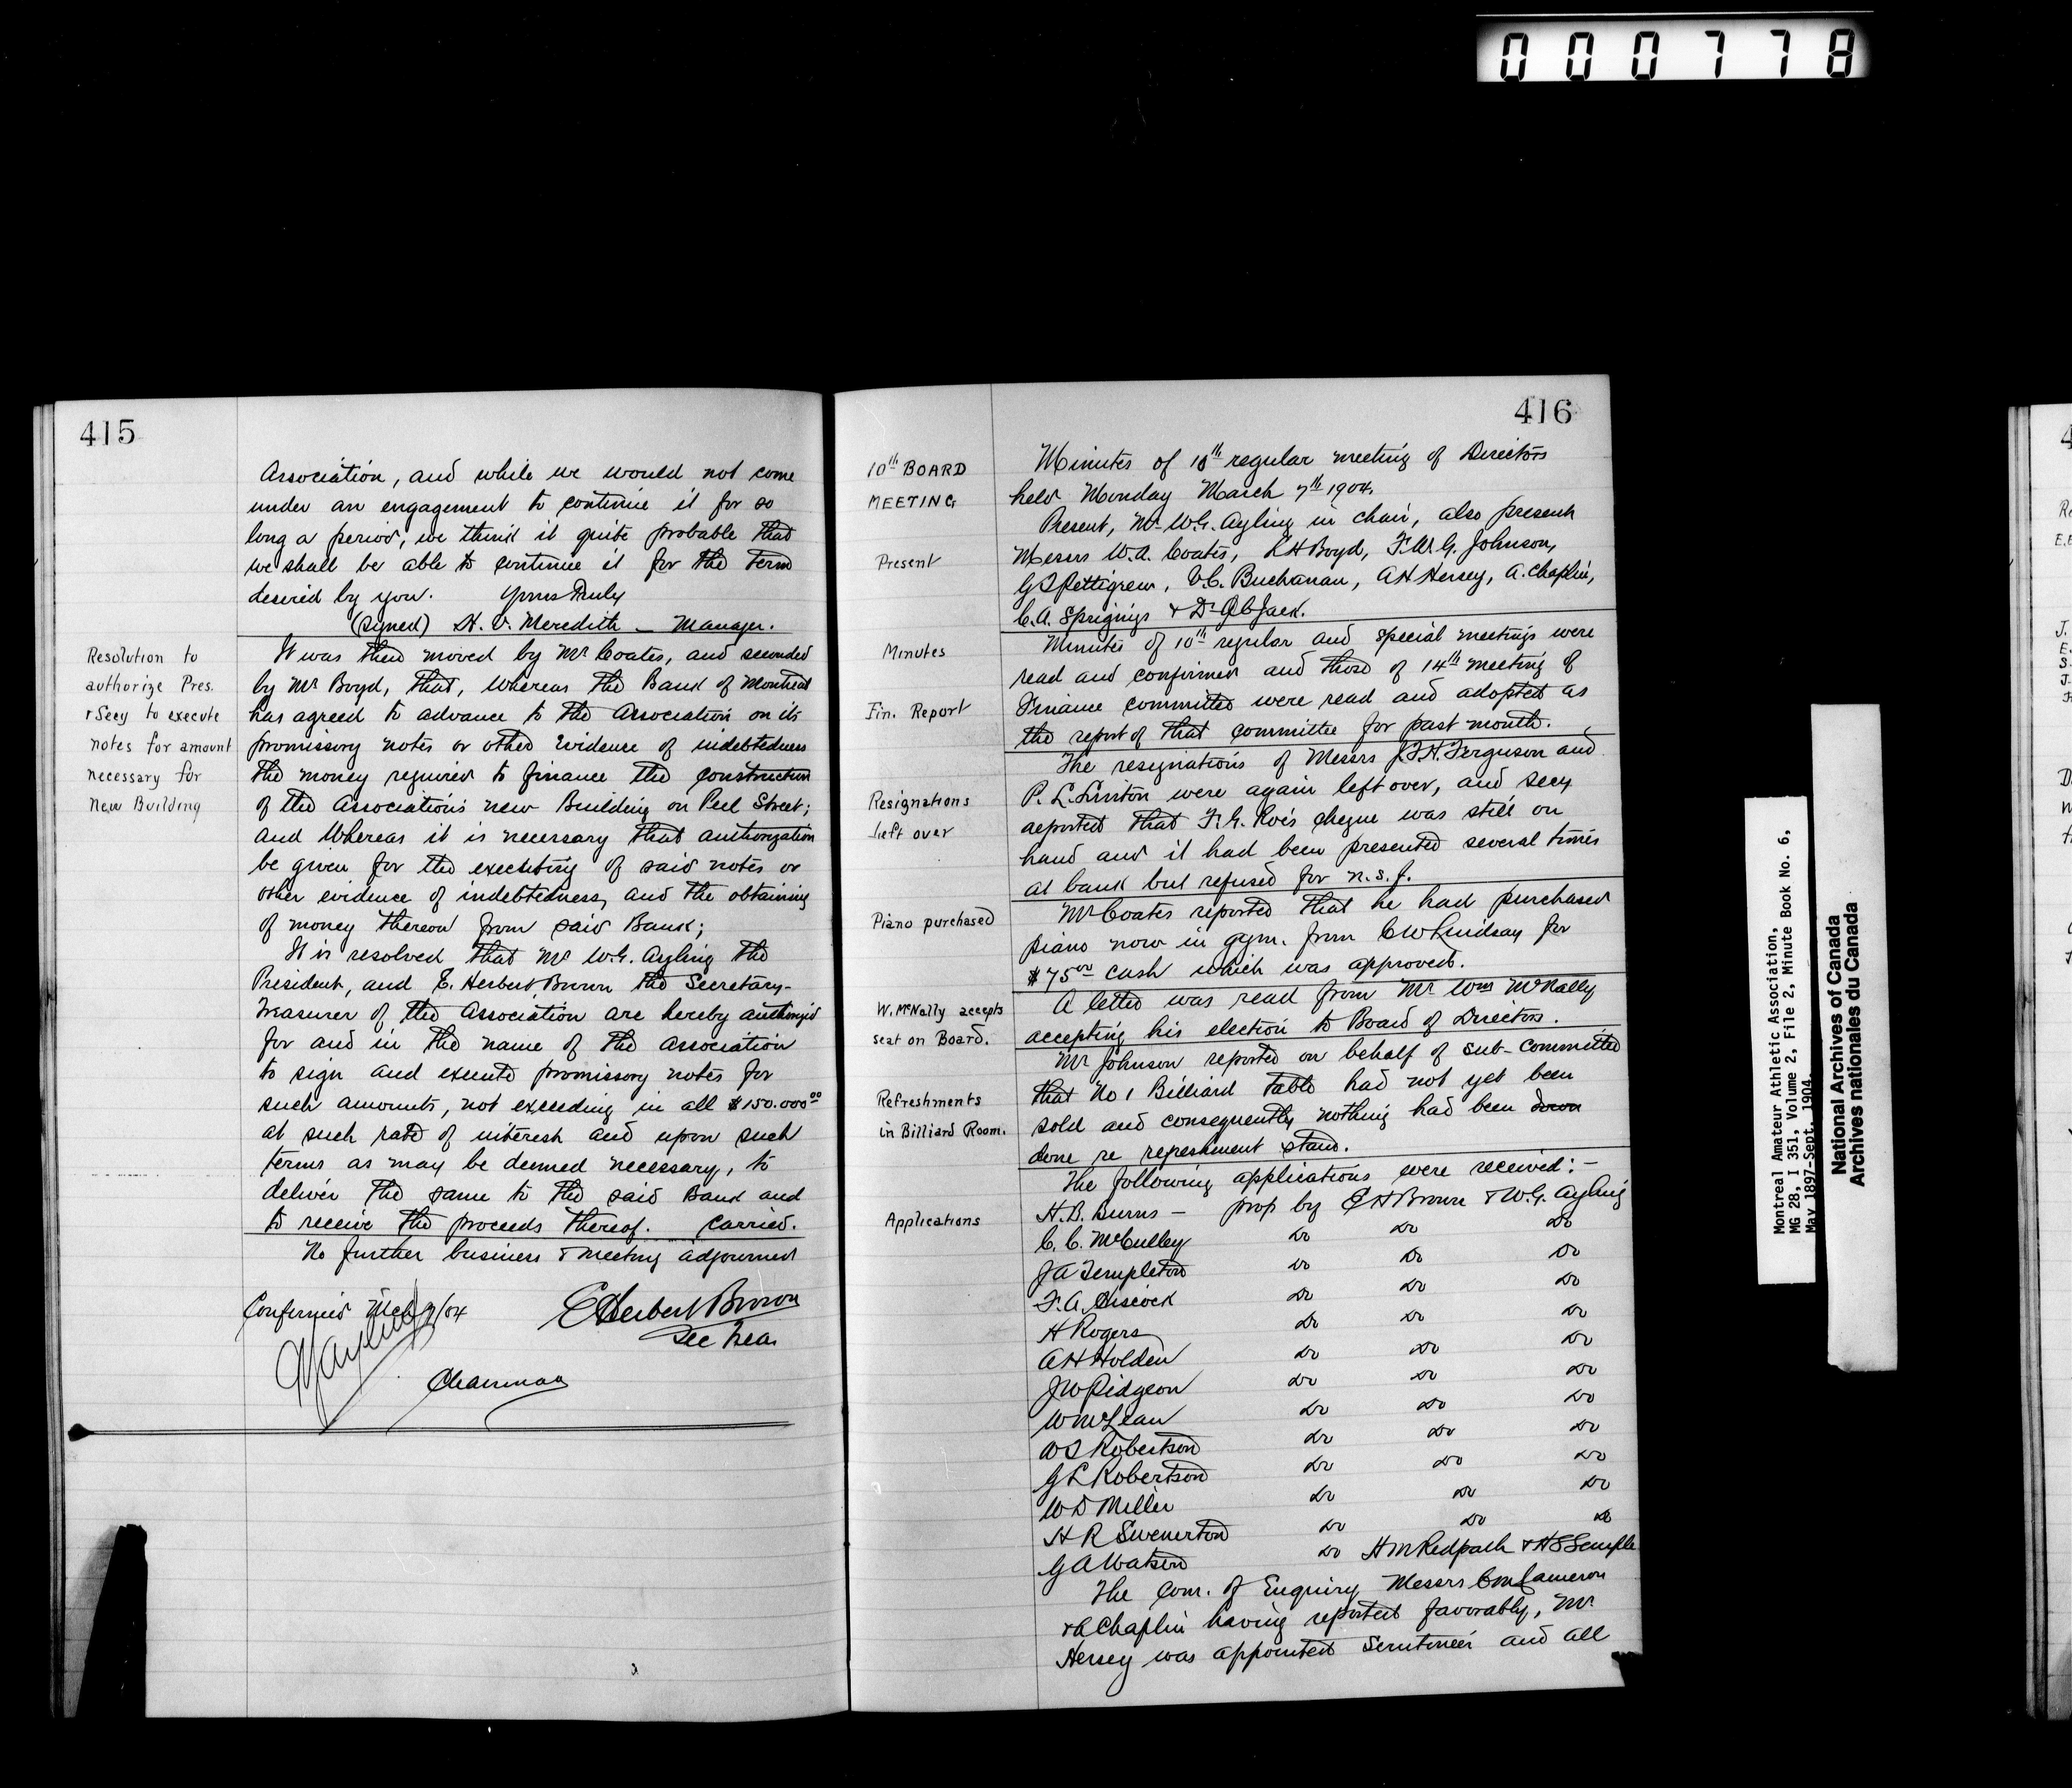 000778
415
Association, and while we would not come
under an engagement to continue it for so
long a period, we think it quite probable that
we shall be able to continue it for the term
desired by you. Yours Truly
(signed) H. V. Meredith — Manager.
Resolution to
authorize Pres.
& Secy to execute
notes for amount
necessary for
New Building
It was then moved by Mr Coates, and seconded
by Mr Boyd, that, Whereas the Bank of Montreal
has agreed to advance to the Association on its
promissory notes or other evidence of indebtedness
the money required to finance the construction
of the Association's new Building on Peel Street;
and Whereas it is necessary that authorization
be given for the executing of said notes or
other evidence of indebtedness, and the obtaining
of money thereon from said Bank;
It is resolved that Mr W.G. Ayling the
President, and E. Herbert Brown the Secretary-
Treasurer of the Association are hereby authorized
for and in the name of the Association
to sign and execute promissory notes for
such amounts, not exceeding in all $150.000 00
at such rate of interest and upon such
terms as may be deemed necessary, to
deliver the same to the said Bank and
to receive the proceeds thereof. Carried.
No further business & meeting adjourned
Confirmed Mch 7/04
E Herbert Brown
Sec Treas
WGAyling
Chairman
416
10th BOARD
MEETING
Minutes of 10th regular meeting of Directors
held Monday March 7th 1904.
Present
Present, Mr W.G. Ayling in chair, also present
Messrs W.A. Coates, L H Boyd, F.W.G. Johnson,
G T Pettigrew, V.C. Buchanan, A H Hersey, A. Chaplin,
C.A. Spriggings & Dr A C Jack.
Minutes
Minutes of 10th regular and special meetings were
read and confirmed and those of 14th meeting of
Fin. Report
Finance committee were read and adopted as
the report of that committee for past month.
Resignations
left over
The resignations of Messrs J.F.H. Ferguson and
P. L. Linton were again left over, and secy
reported that F. G. Roi's cheque was still on
hand and it had been presented several times
at bank but refused for n.s.f.
Piano purchased
Mr Coates reported that he had purchased
piano now in gym. from C W Lindsay for
$75 00 cash which was approved.
W. McNally accepts
seat on Board.
A letter was read from Mr Wm McNally
accepting his election to Board of Directors.
Refreshments
in Billiard Room.
Mr Johnson reported on behalf of sub-committee
that No 1 Billiard table had not yet been
sold and consequently nothing had been down
done re represhment stand.
Applications
The following applications were received: -
H.B. Burns - prop by E H Brown & W.G. Ayling
C. C. McCulley Do Do Do
J A Templeton Do Do Do
F. A. Hiscock Do Do Do
H Rogers Do Do Do
A H Holden Do Do Do
J W Pidgeon Do Do Do
W McLean Do Do Do
W S Robertson Do Do Do
G L Robertson Do Do Do
W D Miller Do Do Do
H R Swenerton Do Do Do
G A Watson Do H M Redpath & H S Semple
The Com. of Enquiry Messrs Cameron
& A Chaplin having reported favorably, Mr
Hersey was appointed Scrutineer and all
Montreal Amateur Athletic Association,
MG 28, I 351, Volume 2, File 2, Minute Book No. 6,
May 1897-Sept. 1904.
National Archives of Canada
Archives nationales du Canada